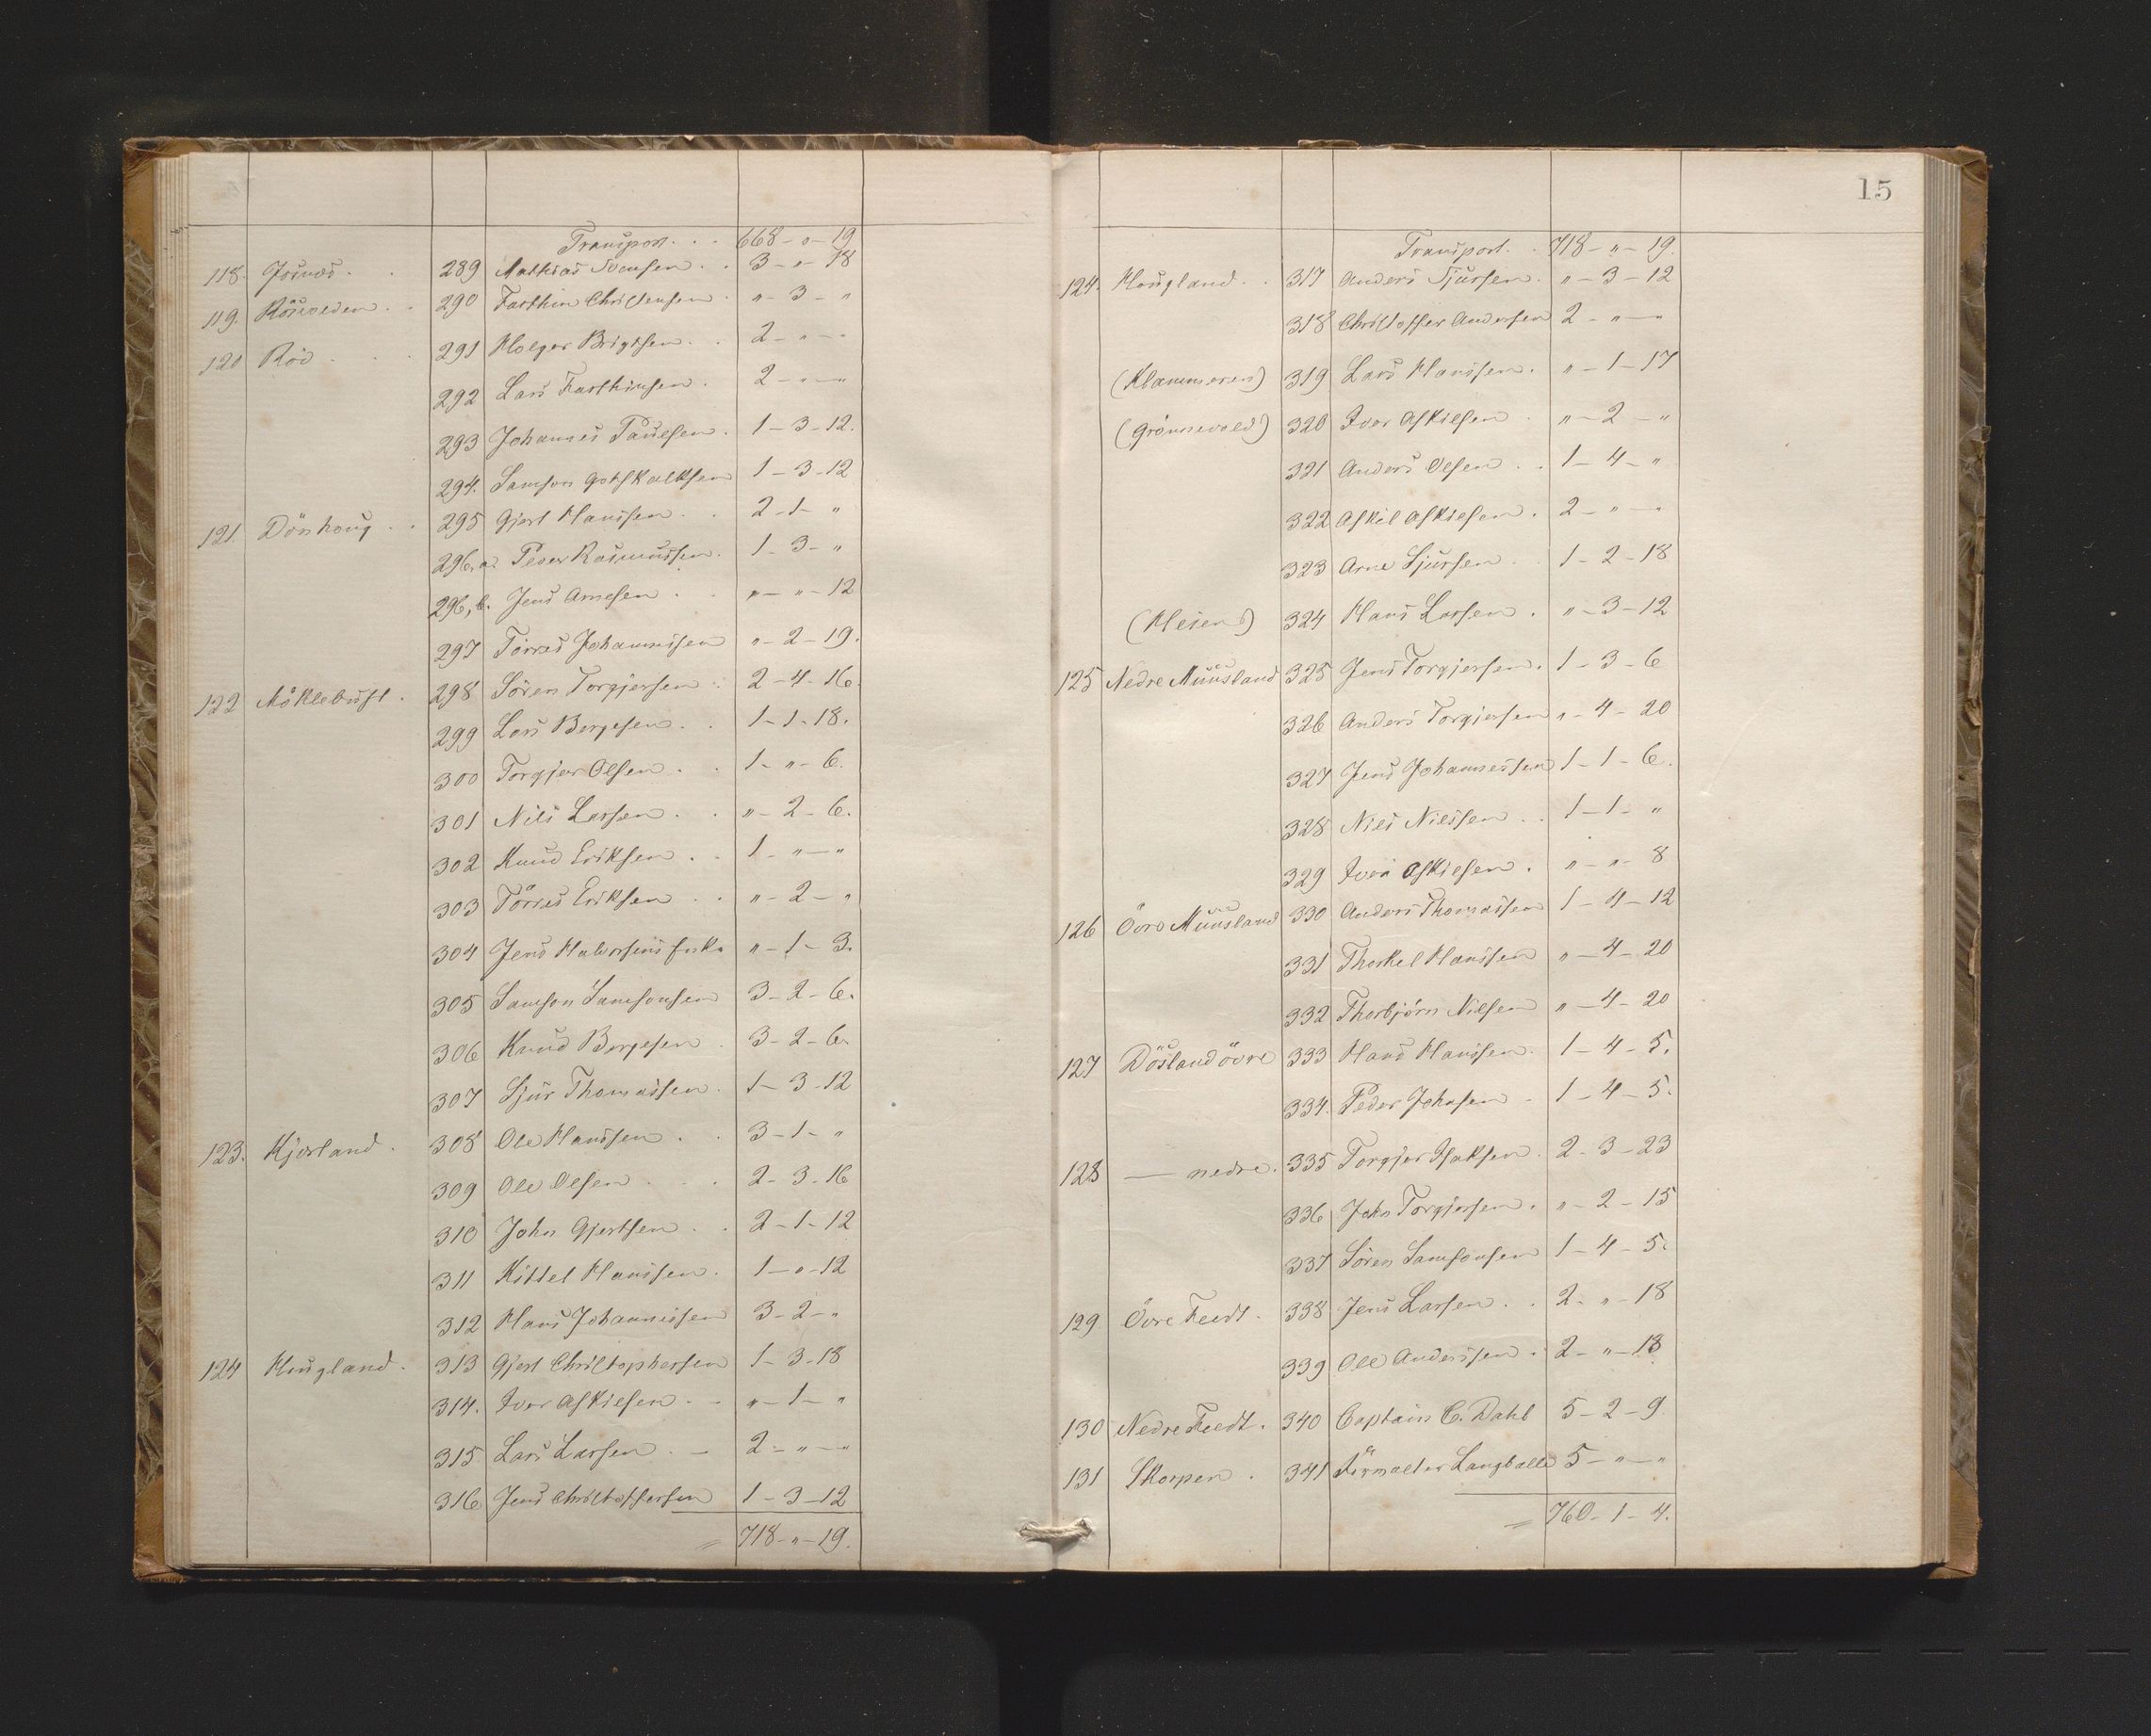 Transport . . . 668 - " - 19
118. Josnæs . . 289 Mathias Svensen . . 3 - " - 18
119. Röisveden . . 290 Farthin Christensen . " - 3 - "
120 Röd . . . 291 Holger Brigtsen . . 2 - " - "
292 Lars Farthinsen . 2 - " - "
293 Johannes Paulsen . 1 - 3 - 12.
294. Samson Gotskalksen 1 - 3 - 12
121. Dönhoug . . 295 Gjert Hanssen . . 2 - 1 - "
296, a. Peder Rasmussen . 1 - 3 - "
296, b. Jens Arnesen . . " - " - 12
297 Törres Johannessen " - 2 - 19.
122 Möklebust . 298 Sören Torgjersen . 2 - 4 - 16.
299 Lars Børgesen . . 1 - 1 - 18.
300 Torgjer Olsen . . 1 - " - 6.
301 Nils Larsen . . " - 2 - 6.
302 Knud Eriksen . . 1 - " - "
303 Törres Eriksen . . " - 2 - "
304 Jens Halvorsens Enke " - 1 - 3.
305 Samson Samsonsen 3 - 2 - 6.
306 Knud Børgesen . 3 - 2 - 6.
307 Sjur Thomassen . 1 - 3 - 12
123. Kjærland . 308 Ole Hanssen . . 3 - 1 - "
309 Ole Olsen . . . 2 - 3 - 16
310 John Gjertsen . . 2 - 1 - 12
311 Kittel Hanssen . 1 - " - 12
312 Hans Johannessen 3 - 2 - "
124 Hougland . 313 Gjert Christophersen 1 - 3 - 18
314. Iver Askilsen . . " - 1 - "
315. Lars Larsen . - 2 - " - "
316 Jens Christoffersen 1 - 3 - 12
= 718 - " - 19.
15
Transport . . 718 - " - 19.
124. Hougland . . 317 Anders Sjursen . " - 3 - 12
318 Christoffer Andersen 2 - " - "
(Klammeren) 319 Lars Hanssen . " - 1 - 17
(Grönnevold) 320 Iver Askilsen . " - 2 - "
321 Anders Olsen . . 1 - 4 - "
322 Askil Askilsen . 2 - " - "
323 Arne Sjursen . . 1 - 2 - 18
(Heien) 324 Hans Larsen . " - 3 - 12
125 Nedre Muusland 325 Jens Torgjersen . 1 - 3 - 6
326 Anders Torgjersen " - 4 - 20
327 Jens Johannessen 1 - 1 - 6.
328 Nils Nilssen . . 1 - 1 - "
329 Iver Askilsen . " - " - 8
126 Övre Muusland 330 Anders Thomassen 1 - 4 - 12
331 Thorkel Hanssen " - 4 - 20
332 Thorbjörn Nilsen " - 4 - 20
127 Dösland övre 333 Hans Hanssen . 1 - 4 - 5.
334. Peder Johnsen . 1 - 4 - 5.
128 — nedre . 335 Torgjer Isaksen . 2 - 3 - 23
336 John Torgjersen . " - 2 - 15
337 Sören Samsonsen 1 - 4 - 5.
129. Övre Feedt . 338 Jens Larsen . . 2 - " - 18
339 Ole Anderssen . 2 - " - 18
130 Nedre Feedt . 340 Captain C. Dahl 5 - 2 - 9
131 Skorpen . 341 Forvalter Langballe 5 - " - "
= 760 - 1 - 4.